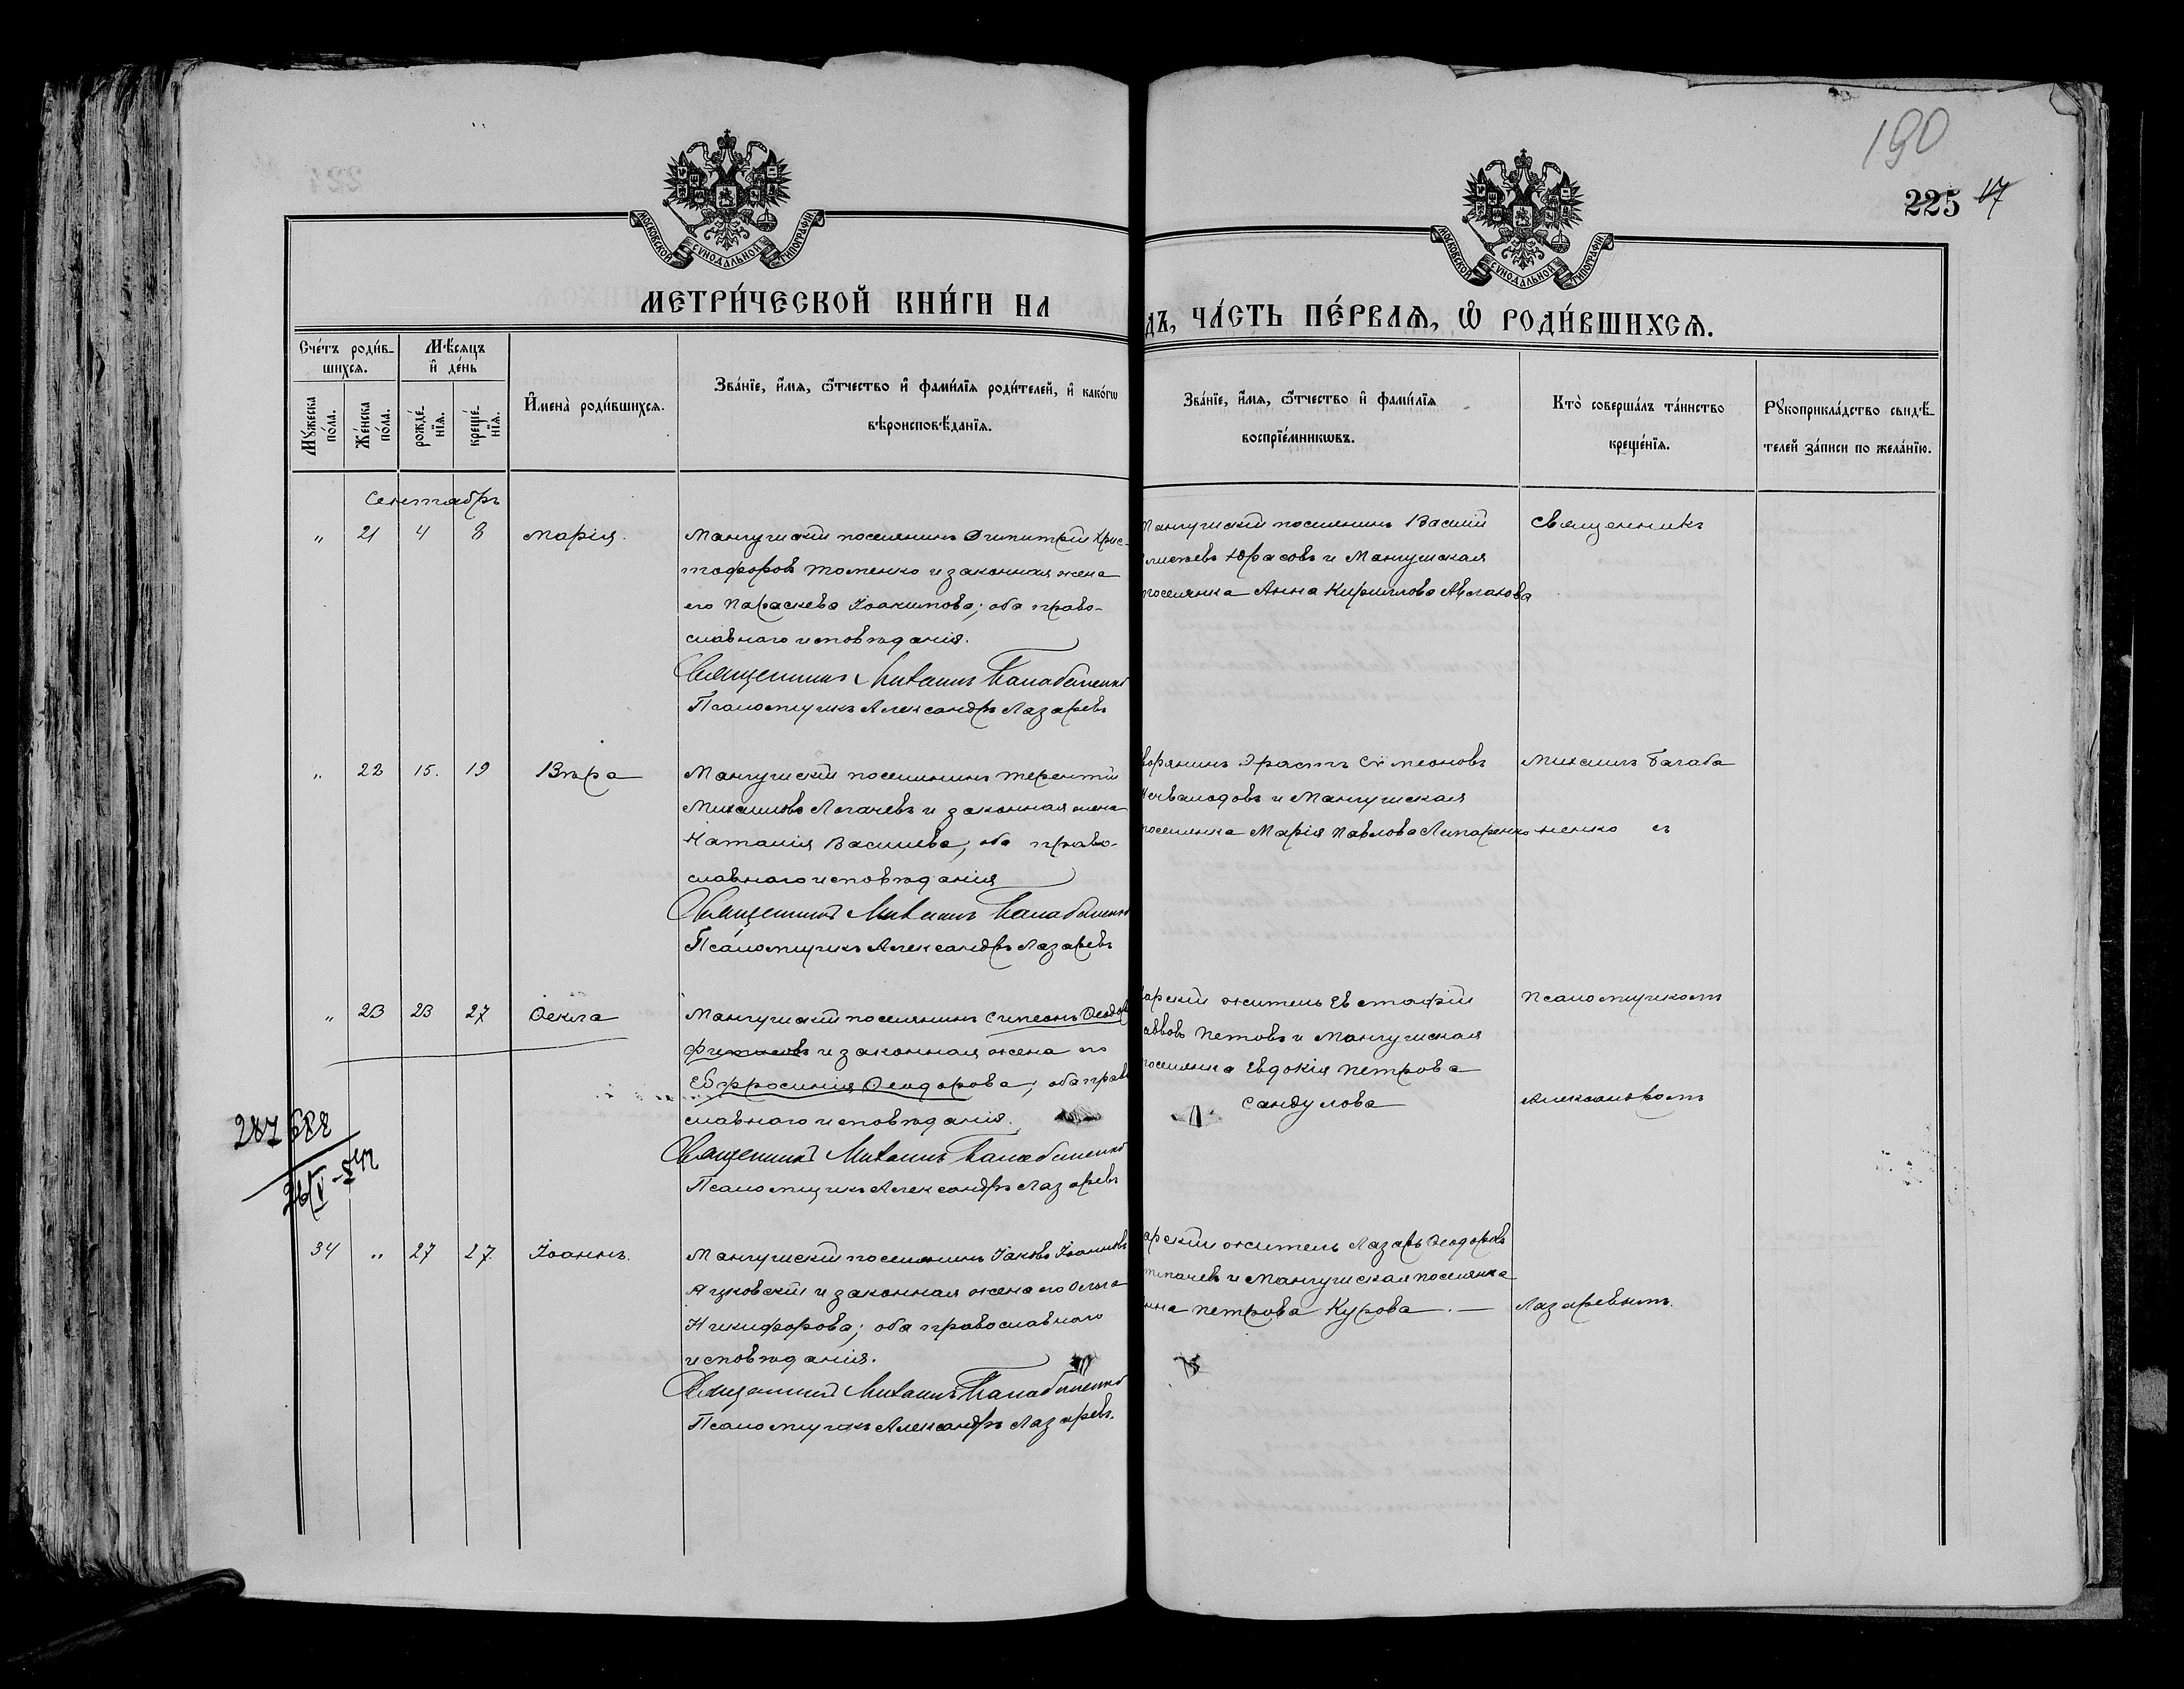 190
225 17
МОСКОВСКОЙ СУНОДАЛЬНОЙ ТИПОГРАФІИ.
МОСКОВСКОЙ СУНОДАЛЬНОЙ ТИПОГРАФІИ.
МЕТРИ́ЧЕСКОЙ КНИ́ГИ НА
ДЪ, ЧА́СТЬ ПЕ́РВАѦ, Ѡ҆ РОДИ́ВШИХСѦ.
Сче́тъ роди́в-
шихсѧ.
Мѣ́сѧцъ
и҆ де́нь
Мꙋ́жеска по́ла.
Же́нска по́ла.
рожде́-
нїѧ.
креще́-
нїѧ.
И҆мена̀ роди́вшихсѧ.
Зва́нїе, и҆́мѧ, ѻ҆́тчество и҆ фами́лїѧ роди́телей, и҆ како́гѡ
вѣроисповѣ́данїѧ.
Зва́нїе, и҆́мѧ, ѻ҆́тчество и҆ фами́лїѧ
воспрїе́мникѡвъ.
Кто̀ соверша́лъ та́инство
креще́нїѧ.
Рꙋкоприкла́дство свидѣ́-
телей за́писи по жела́нїю.
Сентябрь
" 21 4 8 Марія.
Мангушскій поселянинъ Димитрій Хрис-
тофоровъ Томенко и законная жена
его Параскева Іоакимова; оба право-
славнаго исповѣданія.
Священникъ Михаилъ Балабаненко
Псаломщикъ Александръ Лазаревъ
Мангушскій поселянинъ Василій
Юрасовъ и Мангушская
поселянка Анна Кириллова
Священникъ
" 22 15. 19 Вѣра
Мангушскій поселянинъ Терентій
Михаиловъ Логачевъ и законная жена
Наталія Васильева, оба право-
славнаго исповѣданія
Священникъ Михаилъ Балабаненко
Псаломщикъ Александръ Лазаревъ
ворянинъ Эрастъ Сѵмеоновъ
и Мангушская
поселянка Марія Павлова
Михаилъ Балаба
ненко съ
" 23 23 27 Ѳекла
Мангушскій поселянинъ Симеонъ Ѳеодор
и законная жена его
Евфросинія Ѳеодорова; оба прав
славнаго исповѣданія.
Священникъ Михаилъ Балабаненко
Псаломщикъ Александръ Лазаревъ
арскій житель Евстафій
аввовъ Петовъ и Мангушская
поселянка Евдокія Петрова
Сандулова
Псаломщикомъ
Александромъ
287688
26/V-54г
34 " 27 27. Іоаннъ.
Мангушскій поселянинъ Іаковъ Іоанновъ
Яцковскій и законная жена его Ольга
Никифорова; оба православнаго
исповѣданія.
Священникъ Михаилъ Балабаненко
Псаломщикъ Александръ Лазаревъ.
арскій житель Лазарь Ѳеодоровъ
и Мангушская поселянка
нна Петрова Курова. —
Лазаревымъ.